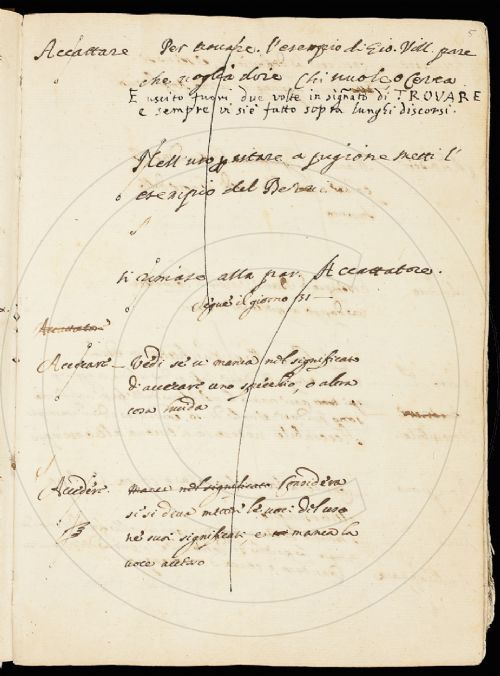 5
Accattare Per trovare. l'esempio di Gio. Vill. pare
che voglia dire Chi vuole o Cerca
E uscito fuori due volte in signato di TROVARE
e sempre vi siè fatto sopra lunghi discorsi.
Nell' uso pigliare a pigione metti l'
esempio del Berni
si rimase alla par. Accattatore.
Segue il giorno 31
Accattatore
Accecare Vedi se vi manca nel significato
d'accecare uno specchio, o altra
cosa lucida
Accedere. Manca nel significato Considera
si si deva metter le voci del uso
ne suoi significati e manca la
voce accesso